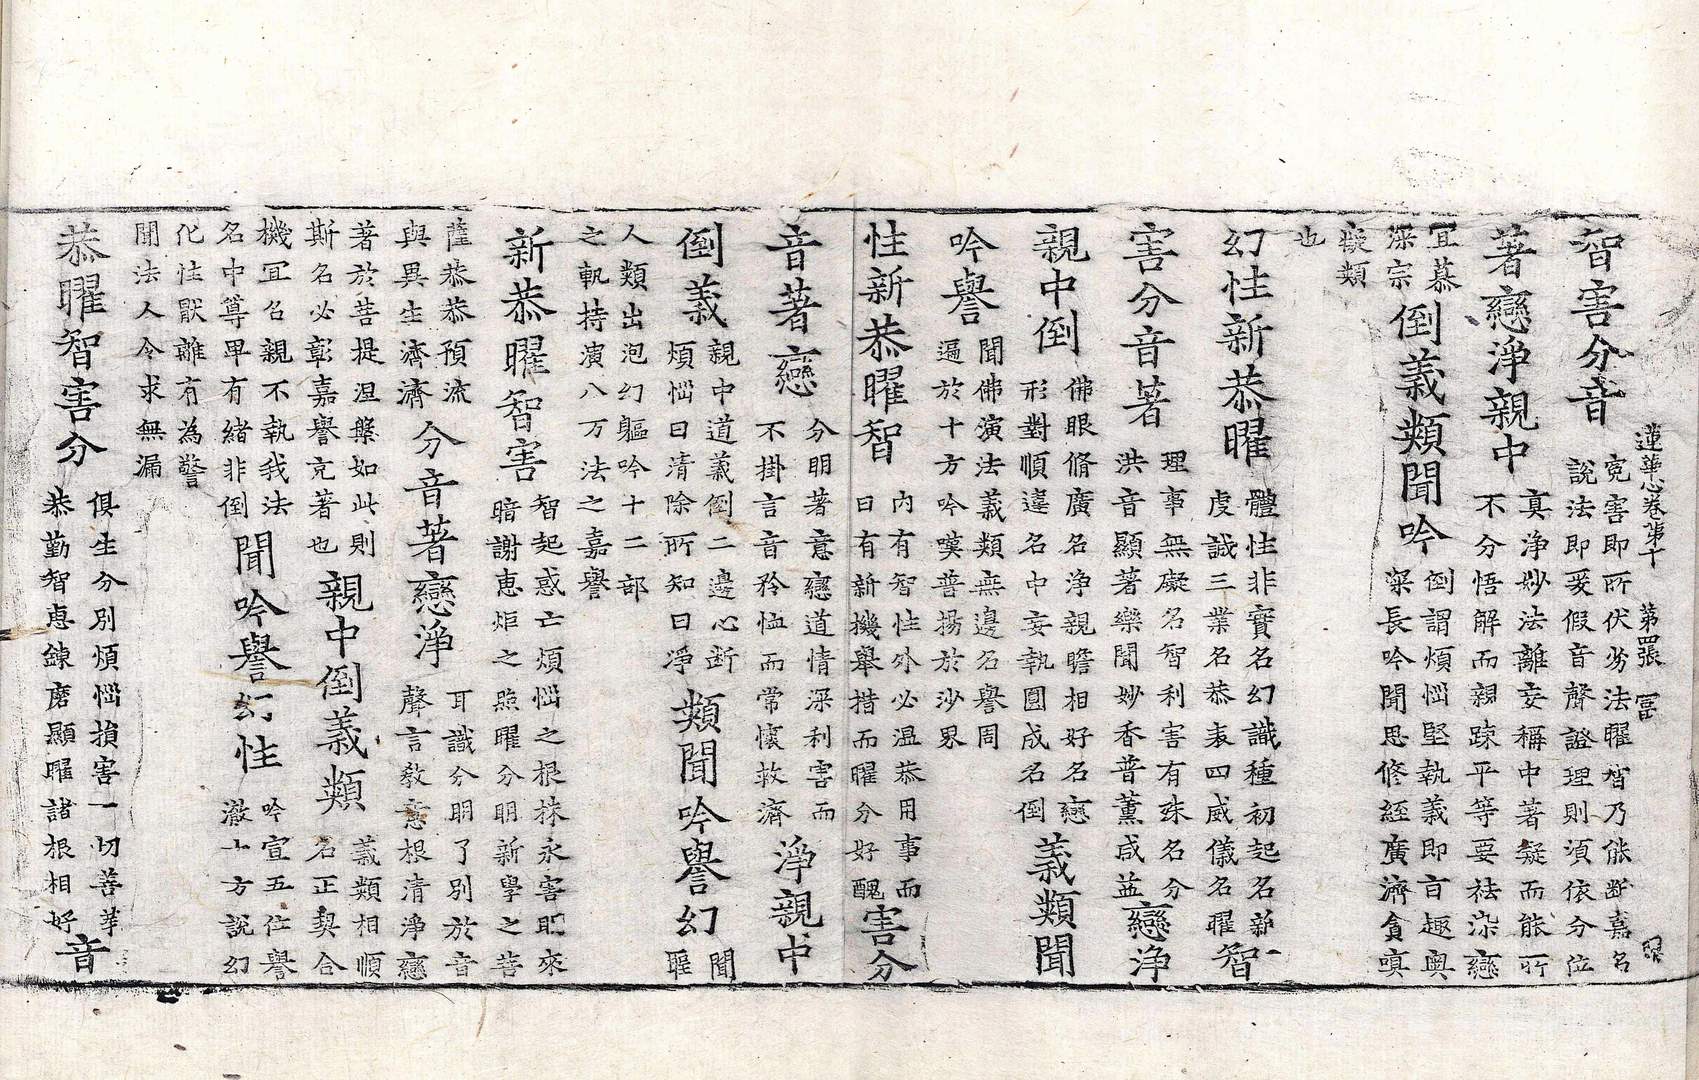 智害分音
寃害即所伏劣法曜智乃能断嘉名
說法即爰假音聲證理則須依分位
蓮華心卷第十 第四張
著戀淨親中
真淨妙法離妄稱中著疑而能所
不分悟解而親踈平等要袪染戀
冝慕
深宗
倒義類聞吟
倒謂煩惱堅執義即盲趣輿
梁長吟聞思修經廣濟貪嗔
癡類
也
幻性新恭曜
體性非實名幻識種初起名新
虔誠三業名恭表四威儀名曜
智
害分音著
理事無礙名智利害有殊名分
洪音顯著樂聞妙香普薰咸益
戀淨
親中倒
佛眼脩廣名淨親瞻相好名戀
形對順違名中妄執圓成名倒
義類聞
吟譽
聞佛演法義類無邊名譽周
遍於十方吟嘆普揚於沙界
性新恭曜智
內有智性外必温恭用事而
曰有新機舉措而曜分好醜
害分
音著戀
分明著意戀道情深利害而
不掛言音矜恤而常懷救濟
淨親中
倒義
親中道義倒二邊心断
煩惱曰清除所知曰淨
類聞吟譽幻
聞
人類出泡幻軀吟十二部
之軌持演八万法之嘉譽
新恭曜智害
智起惑亡煩惱之根株永害即來
暗謝恵炬之照曜分明新學之菩
薩恭恭預流
與異生濟濟
分音著戀淨
耳識分明了別於音
聲言教意根清淨戀
著於菩提涅槃如此則
斯名必彰嘉譽克著也
親中倒義類
義類相順
名正契合
機冝名親不執我法
名中尊卑有緒非倒
聞吟譽幻性
吟宣五位譽
澈十方說幻
化性猒離有為警
聞法人令求無漏
恭曜智害分
俱生分別煩惱損害一切善華
恭勤智恵鍊磨顯曜諸根相好
音